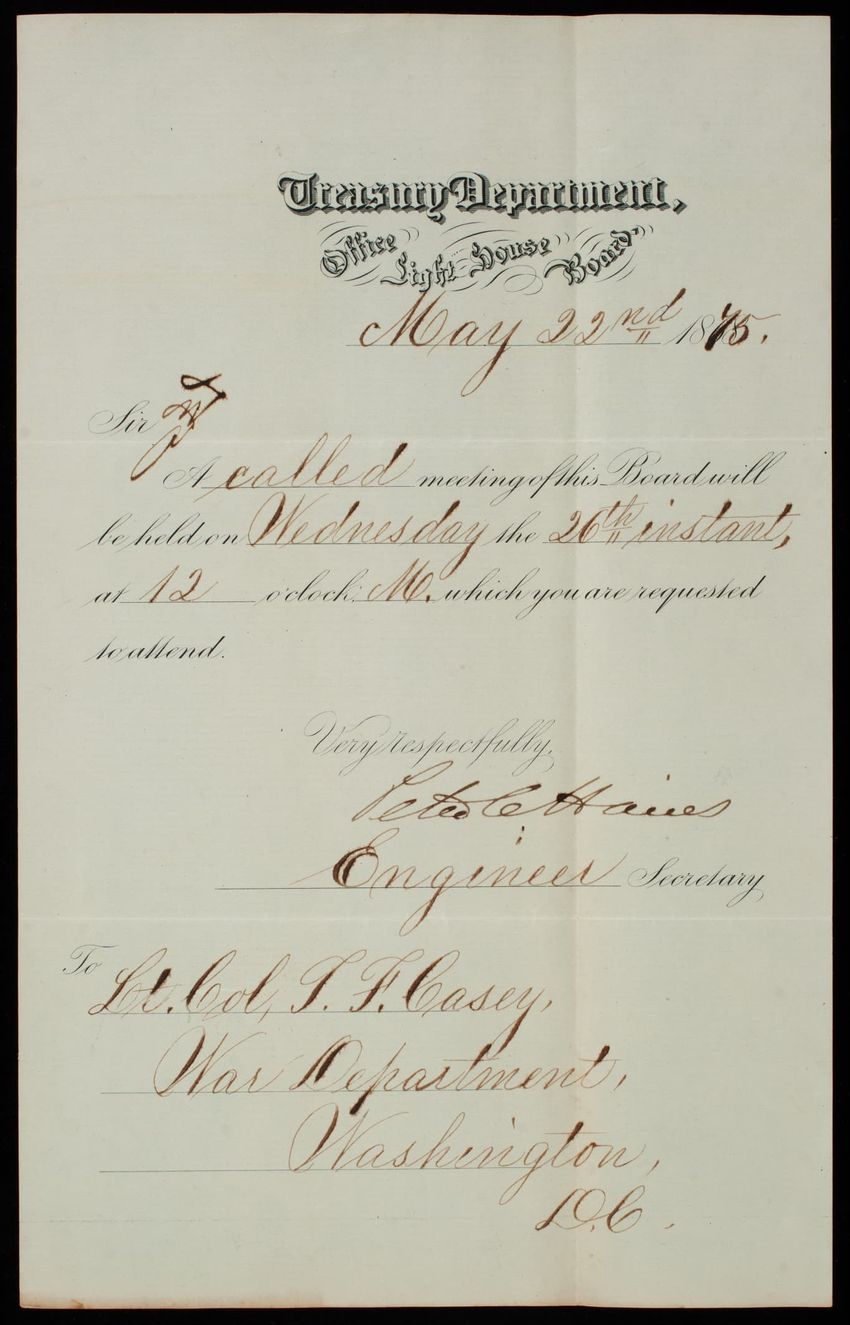 Treasury Department,
Office Light-House Board,
May 22nd 1875.
Sir
A called meeting of this Board will
be held on Wednesday the 26th instant,
at 12 o'clock M. which you are requested
to attend.
Very respectfully,
Peter C Haines
Engineer Secretary
To
Lt. Col, T. F. Casey,
War Department,
Washington,
D.C.